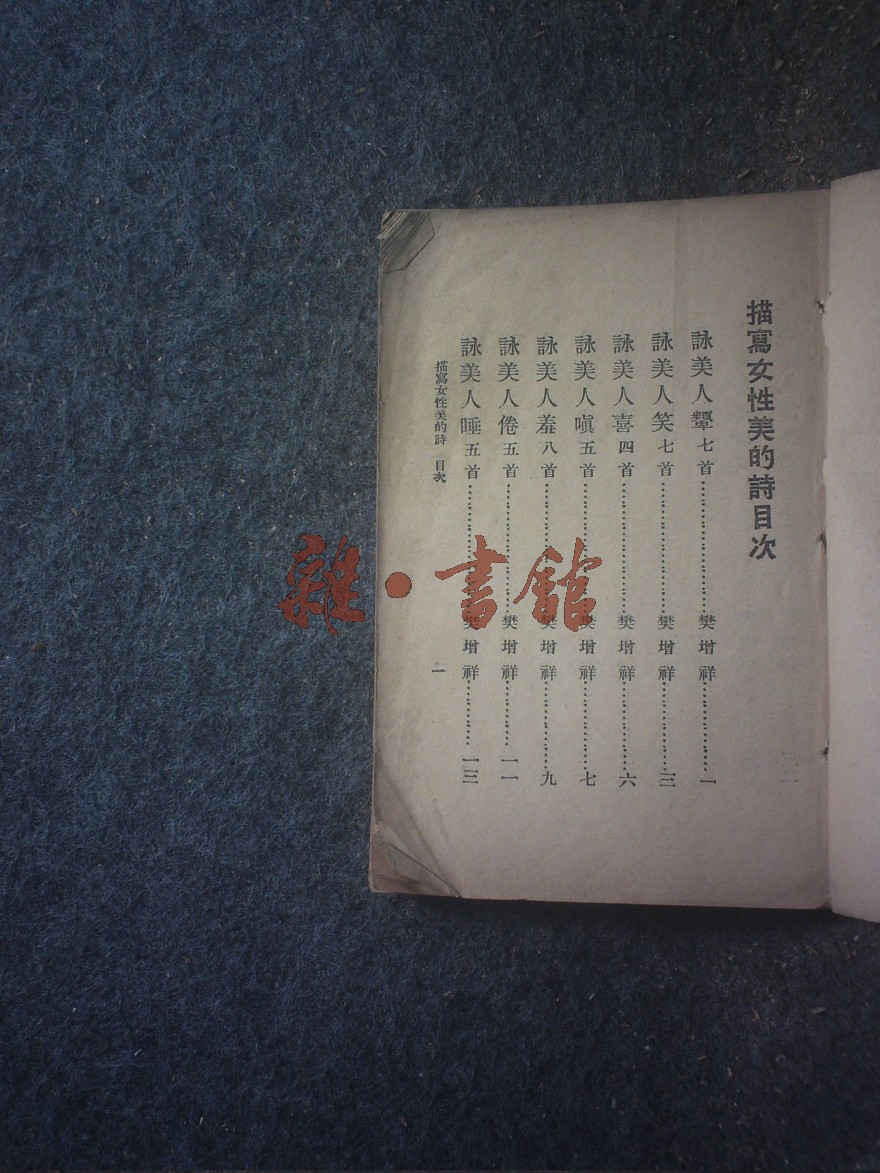 描寫女性美的詩目次
詠美人顰七首……樊增祥……一
詠美人笑七首……樊增祥……三
詠美人喜四首……樊增祥……六
詠美人嗔五首……樊增祥……七
詠美人羞八首……樊增祥……九
詠美人倦五首……樊增祥……一一
詠美人睡五首……樊增祥……一三
描寫女性美的詩 目次
一
雜·書館